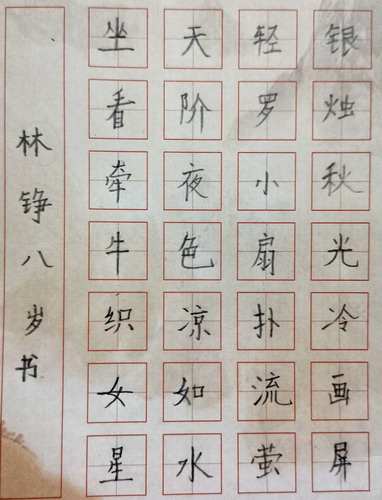 银烛秋光冷画屏
轻罗小扇扑流萤
天阶夜色凉如水
坐看牵牛织女星
林铮八岁书